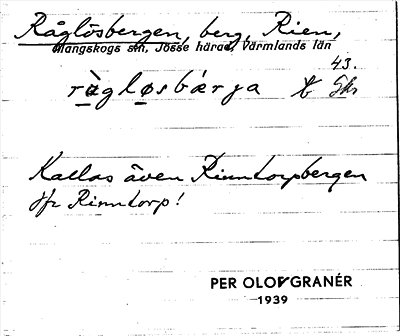 Råglösbergen, berg, Rien,
Mangskogs sn, Jösse härad, Värmlands län
43.
ràgløsbárja
Kallas även Rinntorpbergen
Jfr Rinntorp!
PER OLOF GRANÉR
1939